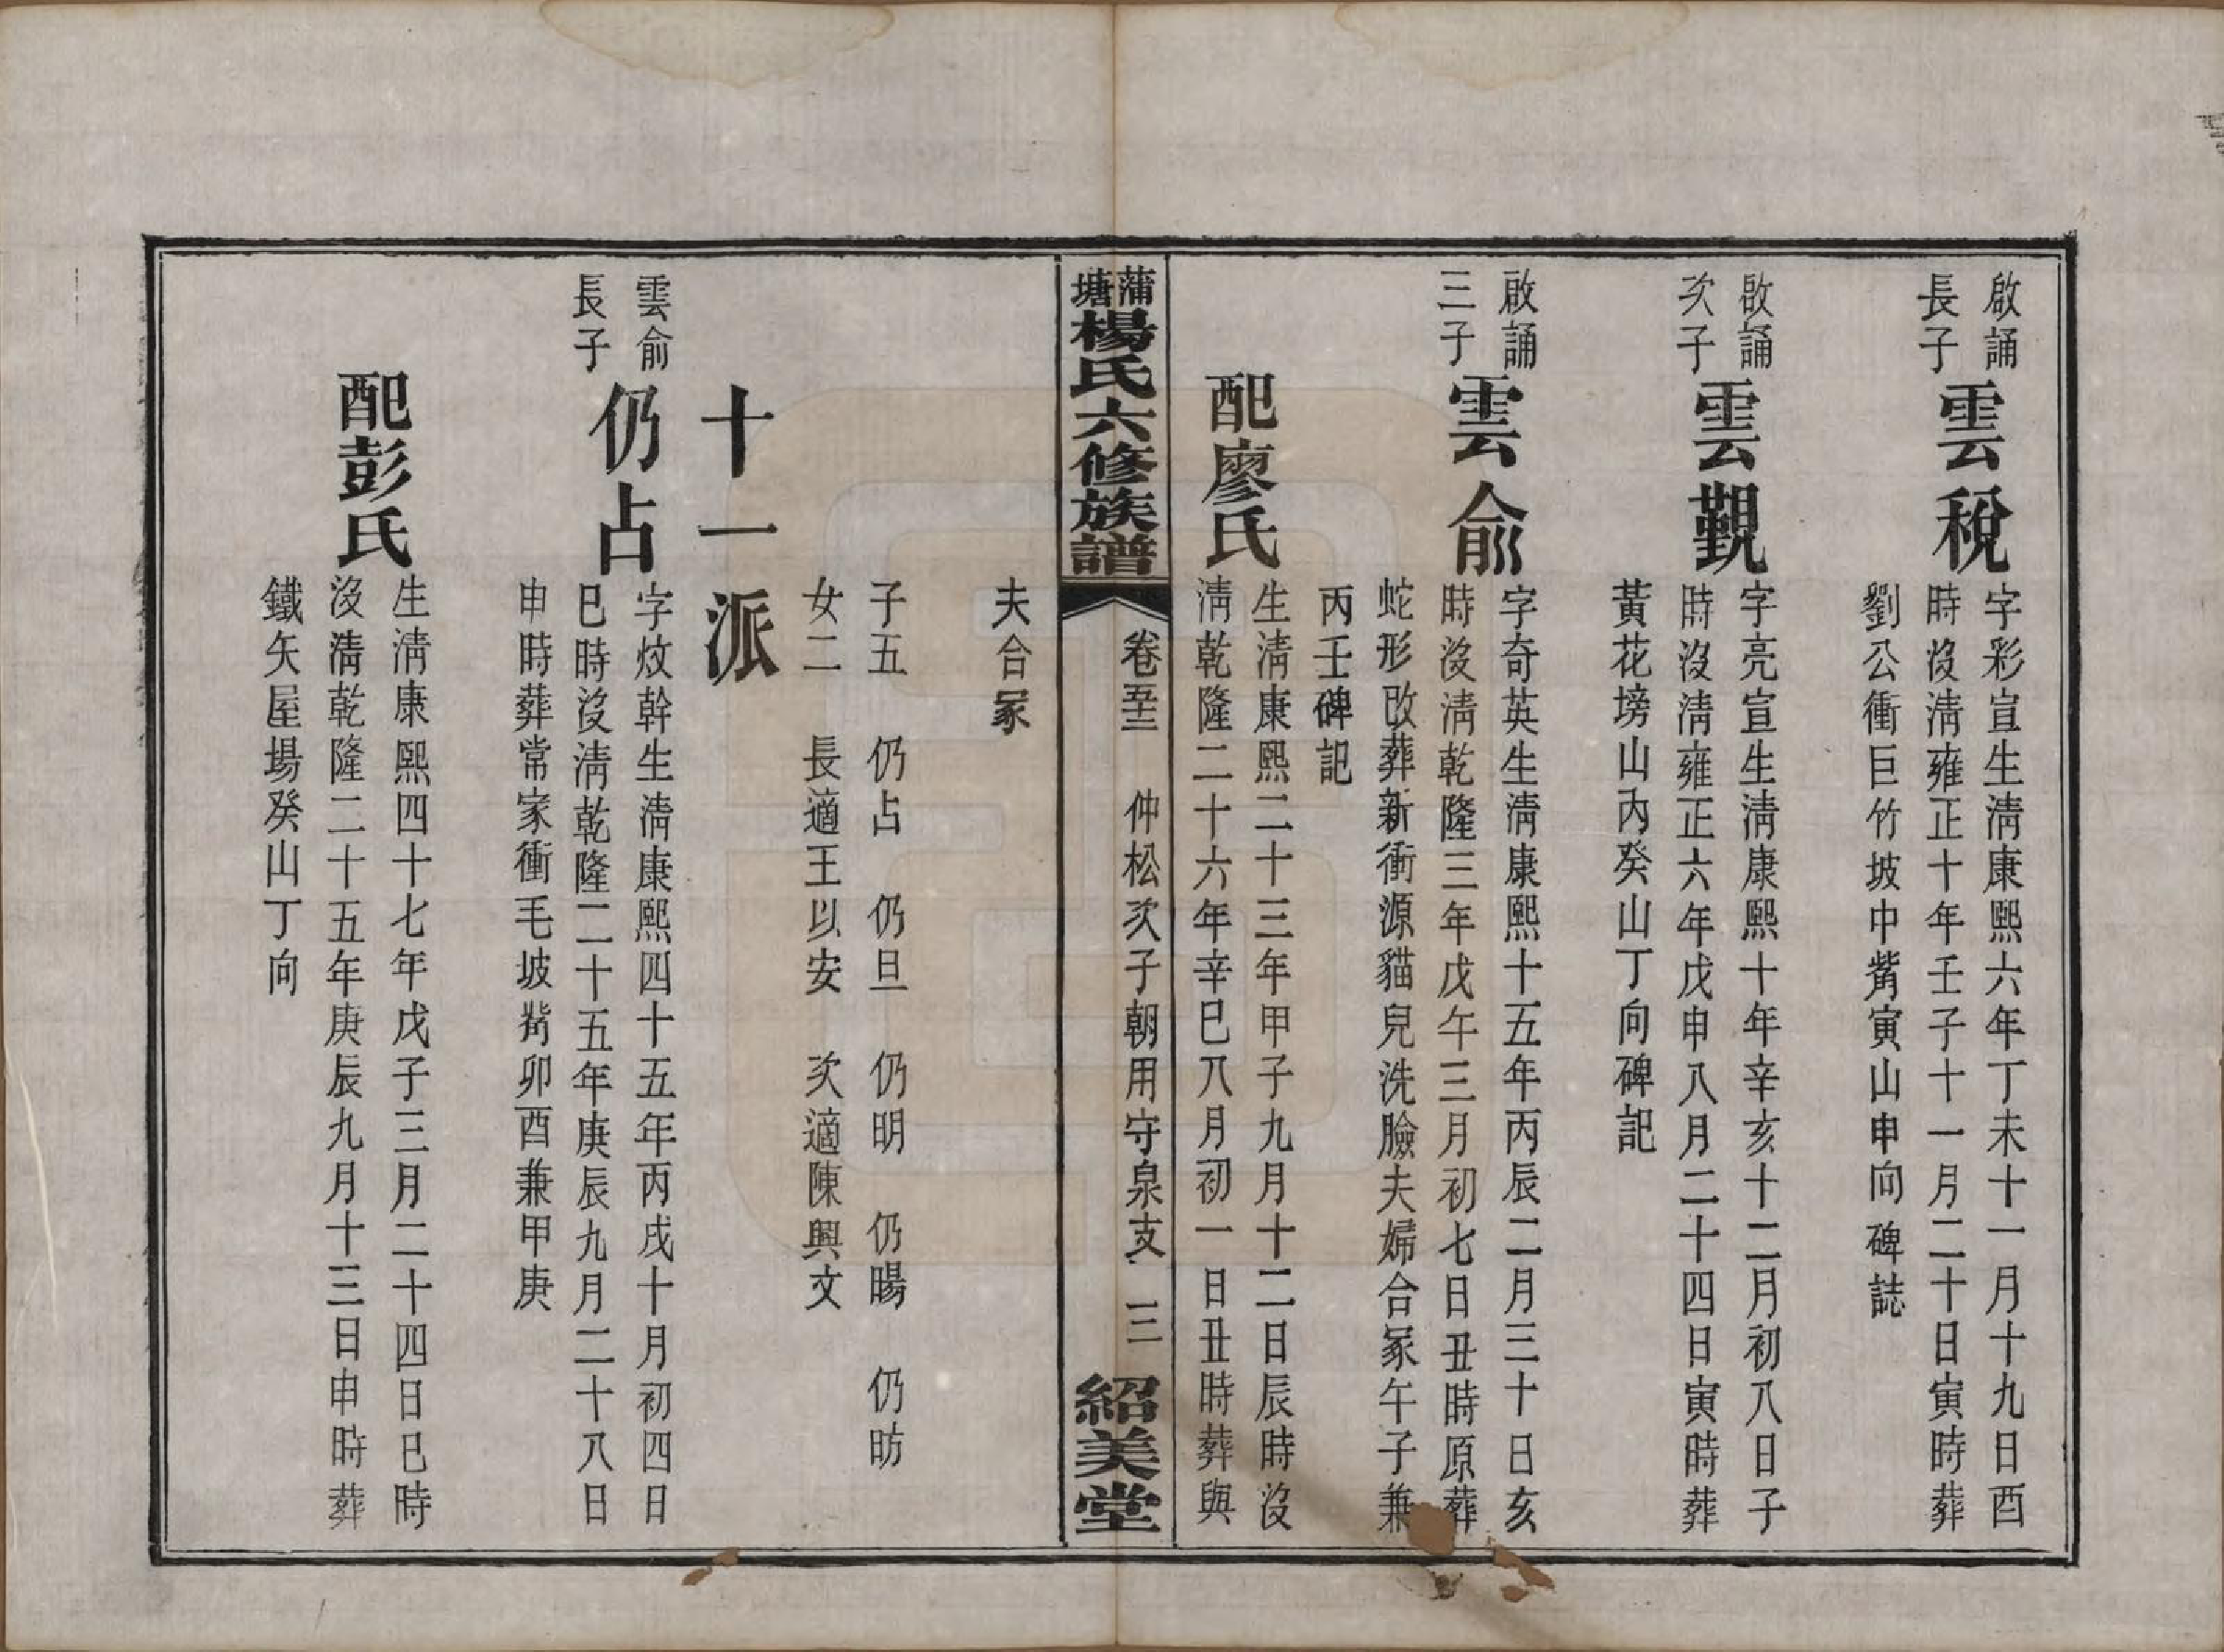 啟誦
長子
雲稅
字彩宣生淸康熙六年丁未十一月十九日酉
時沒淸雍正十年壬子十一月二十日寅時葬
劉公衝巨竹坡中觜寅山申向碑誌
啟誦
次子
雲觀
字亮宣生淸康熙十年辛亥十二月初八日子
時沒淸雍正六年戊申八月二十四日寅時葬
黃花塝山內癸山丁向碑記
啟誦
三子
雲俞
字奇英生淸康熙十五年丙辰二月三十日亥
時沒淸乾隆三年戊午三月初七日丑時原葬
蛇形改葬新衝源貓兒洗臉夫婦合冢午子兼
丙壬碑記
配廖氏
生淸康熙二十三年甲子九月十二日辰時沒
淸乾隆二十六年辛巳八月初一日丑時葬與
蒲塘楊氏六修族譜
卷五十三 仲松次子朝用守泉支 三
紹美堂
夫合冢
子五 仍占 仍旦 仍明 仍暘 仍昉
女二 長適王以安 次適陳興文
十一派
雲俞
長子
仍占
字炆幹生淸康熙四十五年丙戌十月初四日
巳時沒淸乾隆二十五年庚辰九月二十八日
申時葬常家衝毛坡觜卯酉兼甲庚
配彭氏
生淸康熙四十七年戊子三月二十四日巳時
沒淸乾隆二十五年庚辰九月十三日申時葬
鐵矢屋場癸山丁向